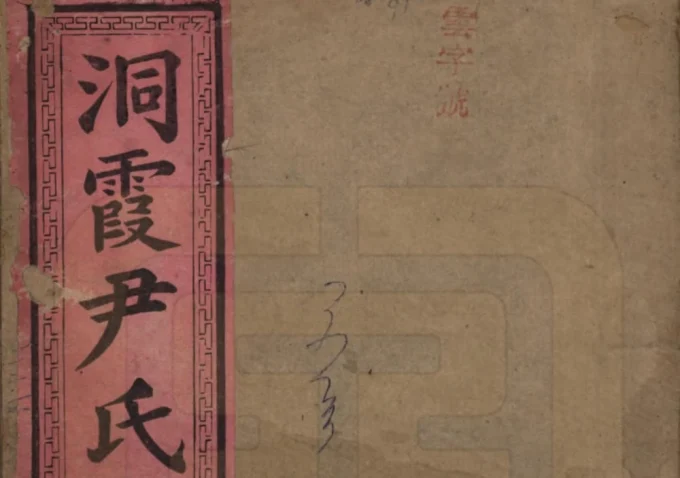 洞霞尹氏
雲字號